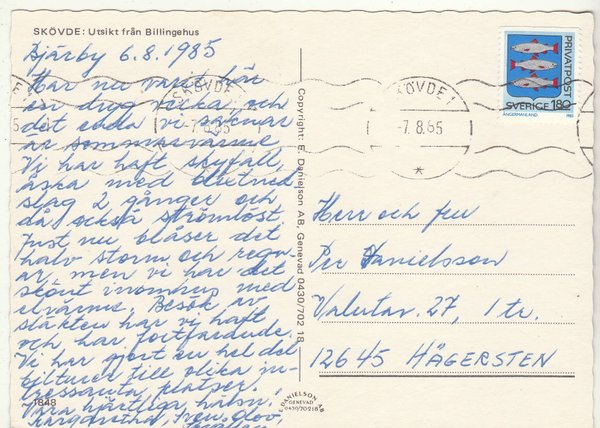 SKÖVDE: Utsikt från Billingehus
Djärby 6.8.1985
Har nu varit här
en dryg vecka och
det enda vi saknar
är sommarvärme
Vi har haft skyfall,
åska med blixtned
slag 2 gånger och
då också strömlöst
Just nu blåser det
halv storm och regn-
ar, men vi har det
skönt inomhus med
elvärme. Besök av
släkten har vi haft
och har fortfarande.
Vi har gjort en hel del
bilturer till olika in-
tressanta platser.
Våra hjärtliga hälsn.
Margaretha, Sven-Olov,
1848
Copyright: E. Danielson AB, Genevad 0430/702 18
E. DANIELSON AB
GENEVAD
0430/70218
SKÖVDE 1
-7.8.85
SKÖVDE 1
-7.8.85
PRIVATPOST
SVERIGE 1.80
ÅNGERMANLAND 1982
Herr och fru
Per Danielsson
Valutav. 27, 1 tr.
12645 HÄGERSTEN